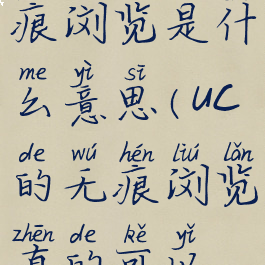 痕浏览是什
me yì sī
么意思(UC
de wú hén liú lǎn
的无痕浏览
zhēn de kě yǐ
真的可以